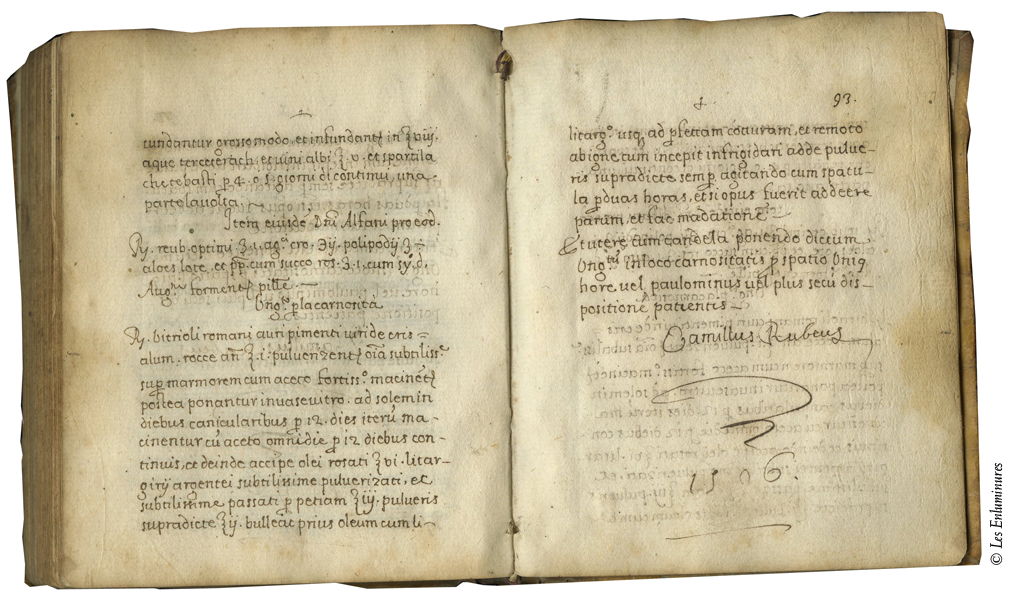 tundantur grossomodo, et infundant in ʒ viij.
aque terceterach, et vini albi ʒ. v. et spartila
che te basti p 4. o .5. giorni di continui, una
parte la volta.
Item eiusde Dni Alfani pro eod.
reub. optimi ʒ.1. polipodij
aloes lote, et pp. cum succo ros. ʒ.1. cum sy. d.
Aug. forment pille.
Ung. p la carnosità
Ry. vitrioli romani auri pimenti viride eris
alum. rocce an ʒ.i. pulverizent oia subtiliss.
sup marmorem cum aceto fortiss.º macinet
postea ponantur in vase vitro. ad solem in
diebus canicularibus p 12. dies iteru ma-
cinentur cu aceto omni die p 12 diebus con-
tinuis, et deinde accipe olei rosati ʒ vi. litar-
girij argentei subtilissime pulverizati, et
subtilissime passati p petiam ʒ iij. pulveris
supradicte ʒ ij. bulleat prius oleum cum li-
93.
litarg.º usq. ad pfettam cotturam, et remoto
ab igne, cum incepit infrigidari adde pulve-
ris supradicte semp agitando cum spatu-
la p duas horas, et si opus fuerit addere
parum, et fac
Et utere cum candela ponendo dictum
Ung.tu in loco carnositatis p spatio Uniq
hore, vel paulo minus vel plus secu dis-
positione patientis
Camillus Rubeus
1506.
© Les Enluminures